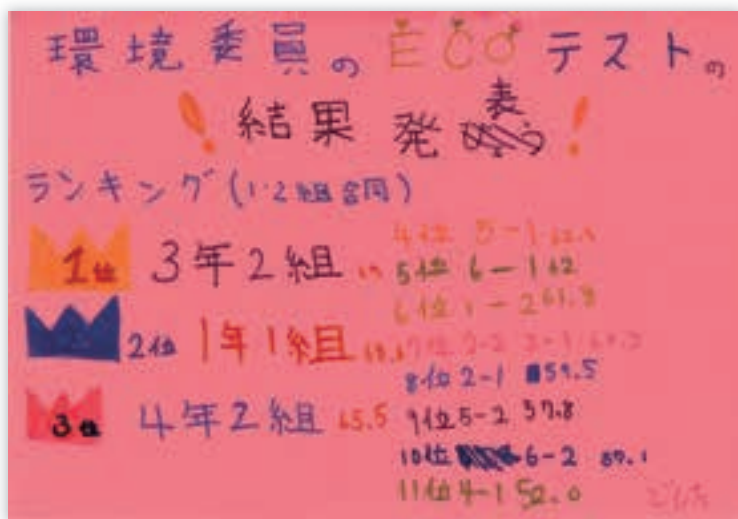 環境委員の ECO テストの
! 結果発表 !
ランキング (1・2組合同)
1位 3年2組
2位 1年1組
3位 4年2組 65.5
4位 5-1
5位 6-1 62
6位 1-2 61.8
7位
8位 2-1 59.5
9位 5-2 57.8
10位 6-2 57.1
11位 4-1 52.0